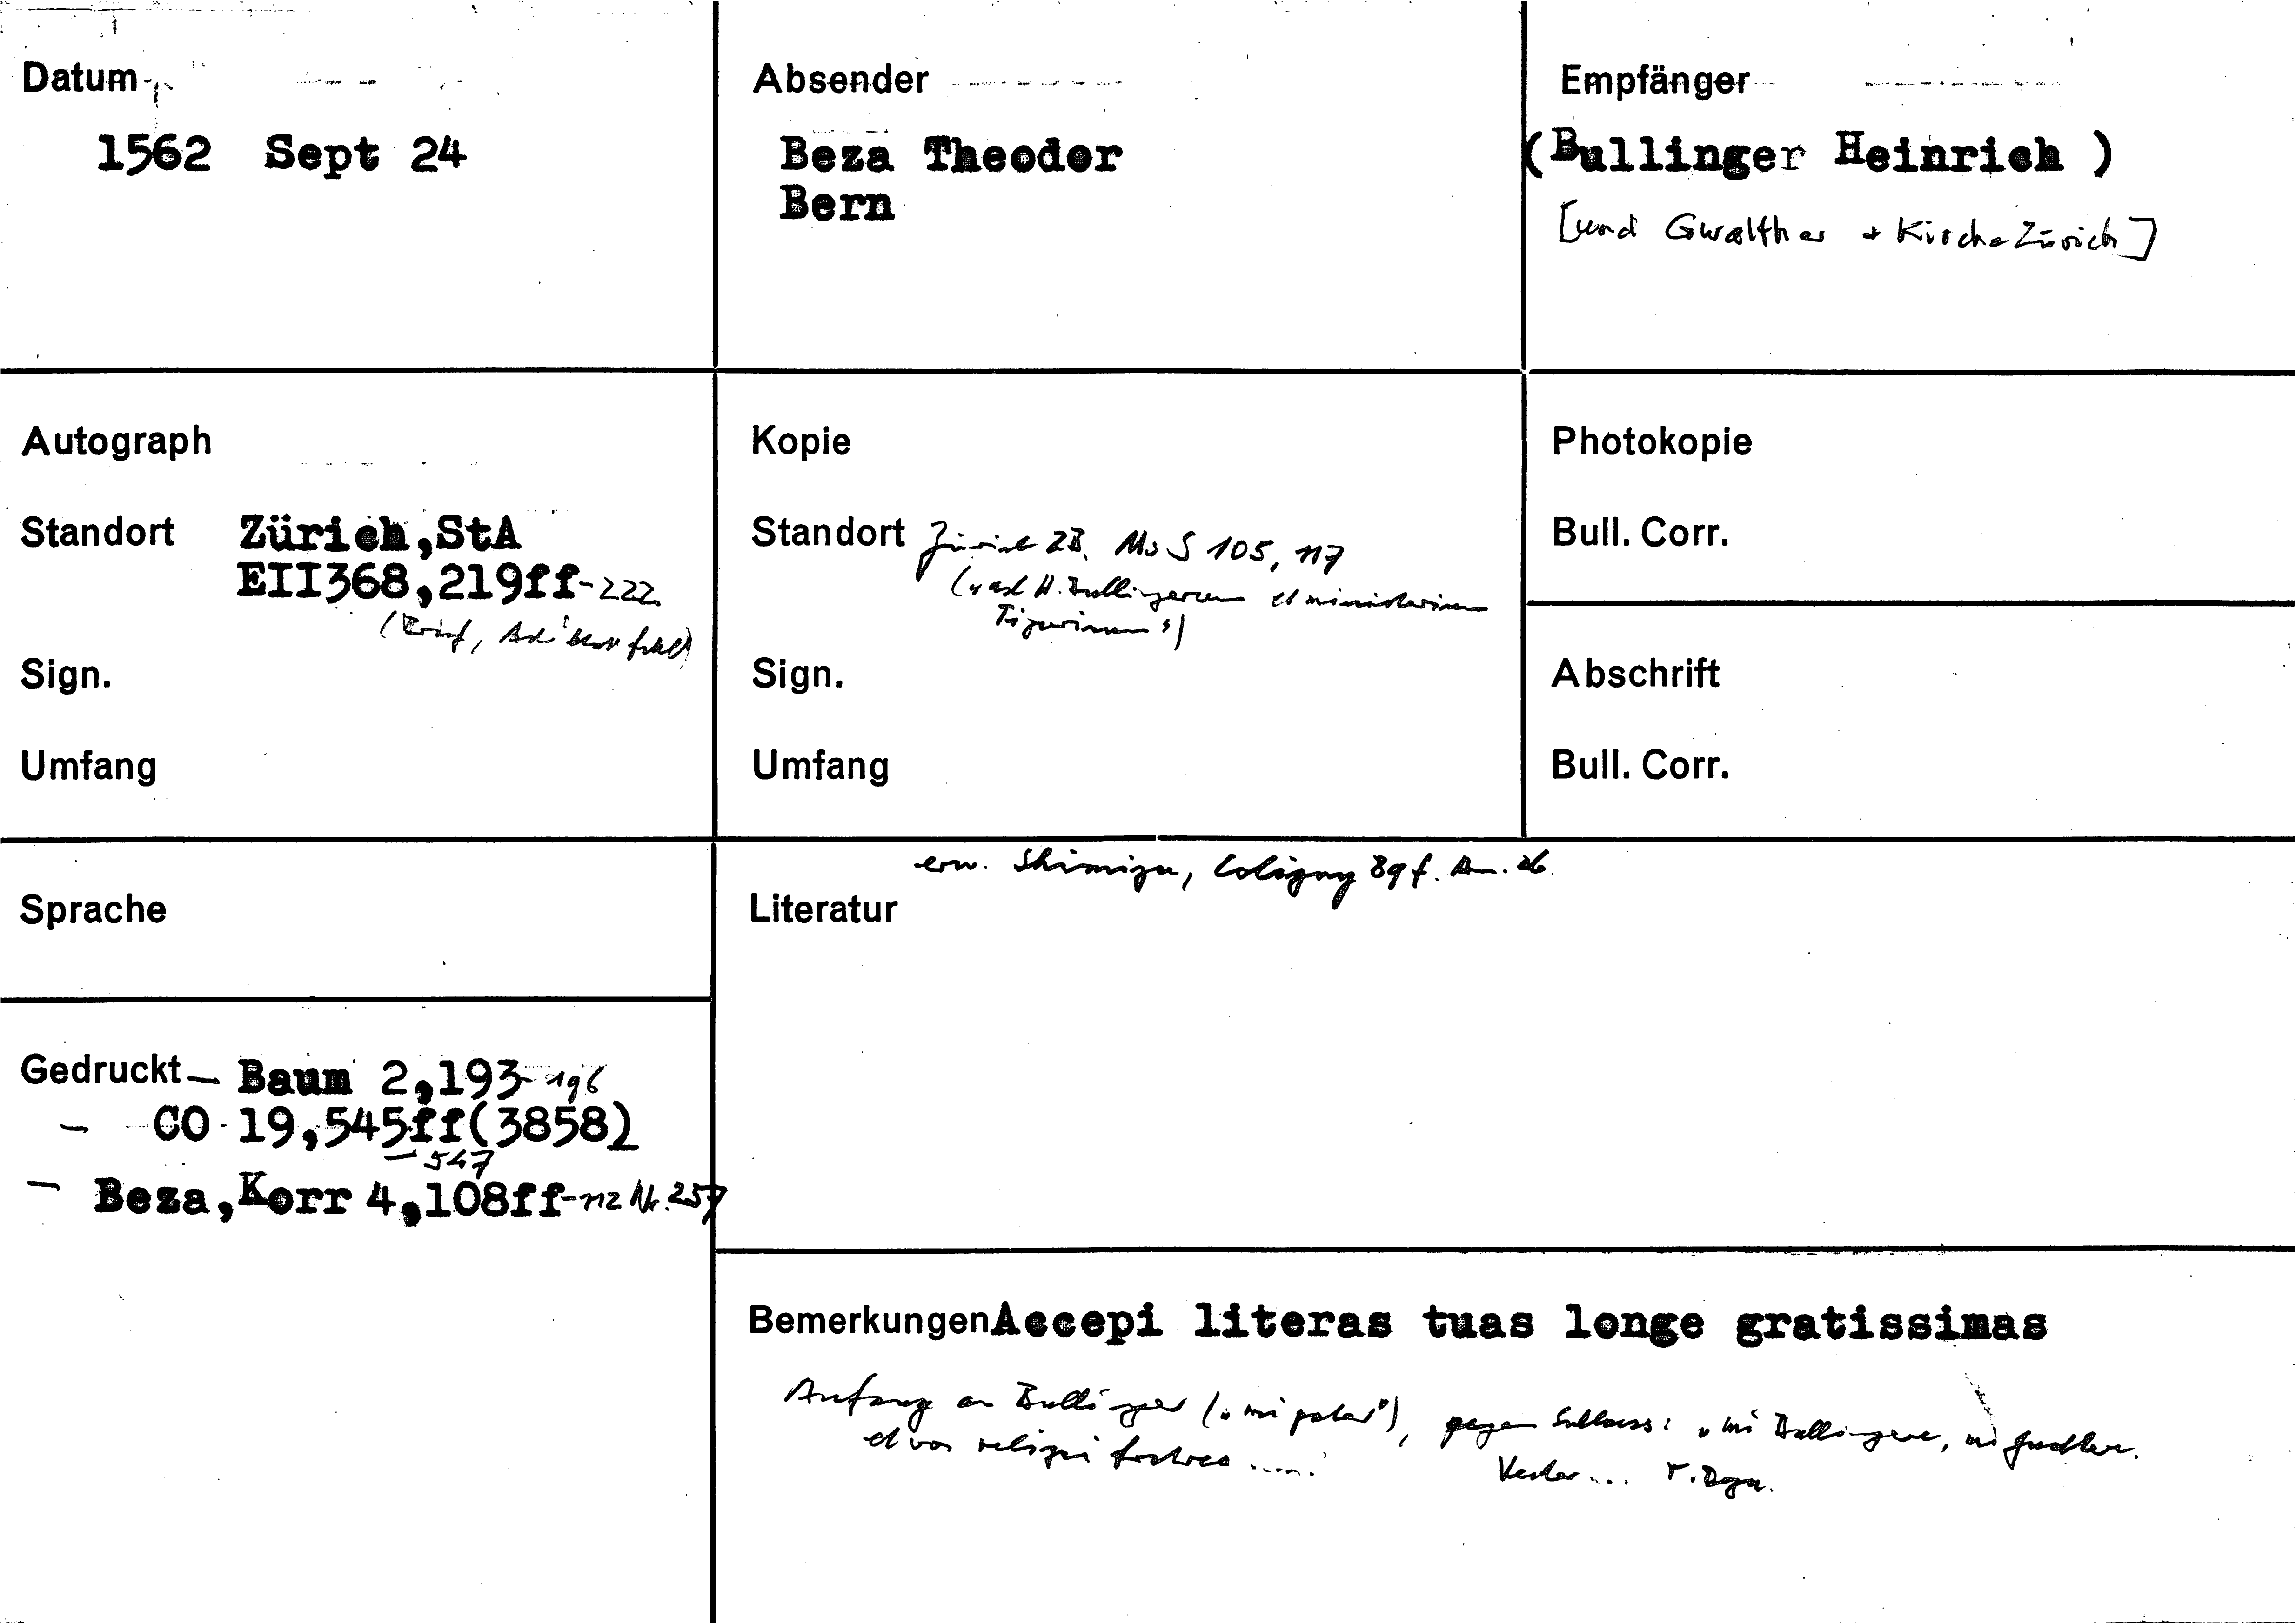 Datum
1562 Sept 24
Absender
Beza Theodor
Bern
Empfänger
(Bullinger Heinrich )
[und Gwalther + Kirche Zürich]
Autograph
Standort Zürich,StA
EII368,219ff-222
Sign.
Umfang
Kopie
Standort Zürich ZB, Ms S 105, 117
("ad H. Bullingerum et ministerium
Tigurinum")
Sign.
Umfang
Photokopie
Bull. Corr.
Abschrift
Bull. Corr.
Sprache
erw. Shimizu, Coligny 89 f.
Literatur
Gedruckt - Baum 2,193-196
- CO 19,545ff(3858)
-547
- Beza,Korr 4,108ff-112 Nr. 257
Bemerkungen Accepi literas tuas longe gratissimas
Anfang an Bullinger ("mi pater"), gegen Schluss: "mi Bullingere, mi
et vos reliqui fratres .....
Vester... T. Beza.